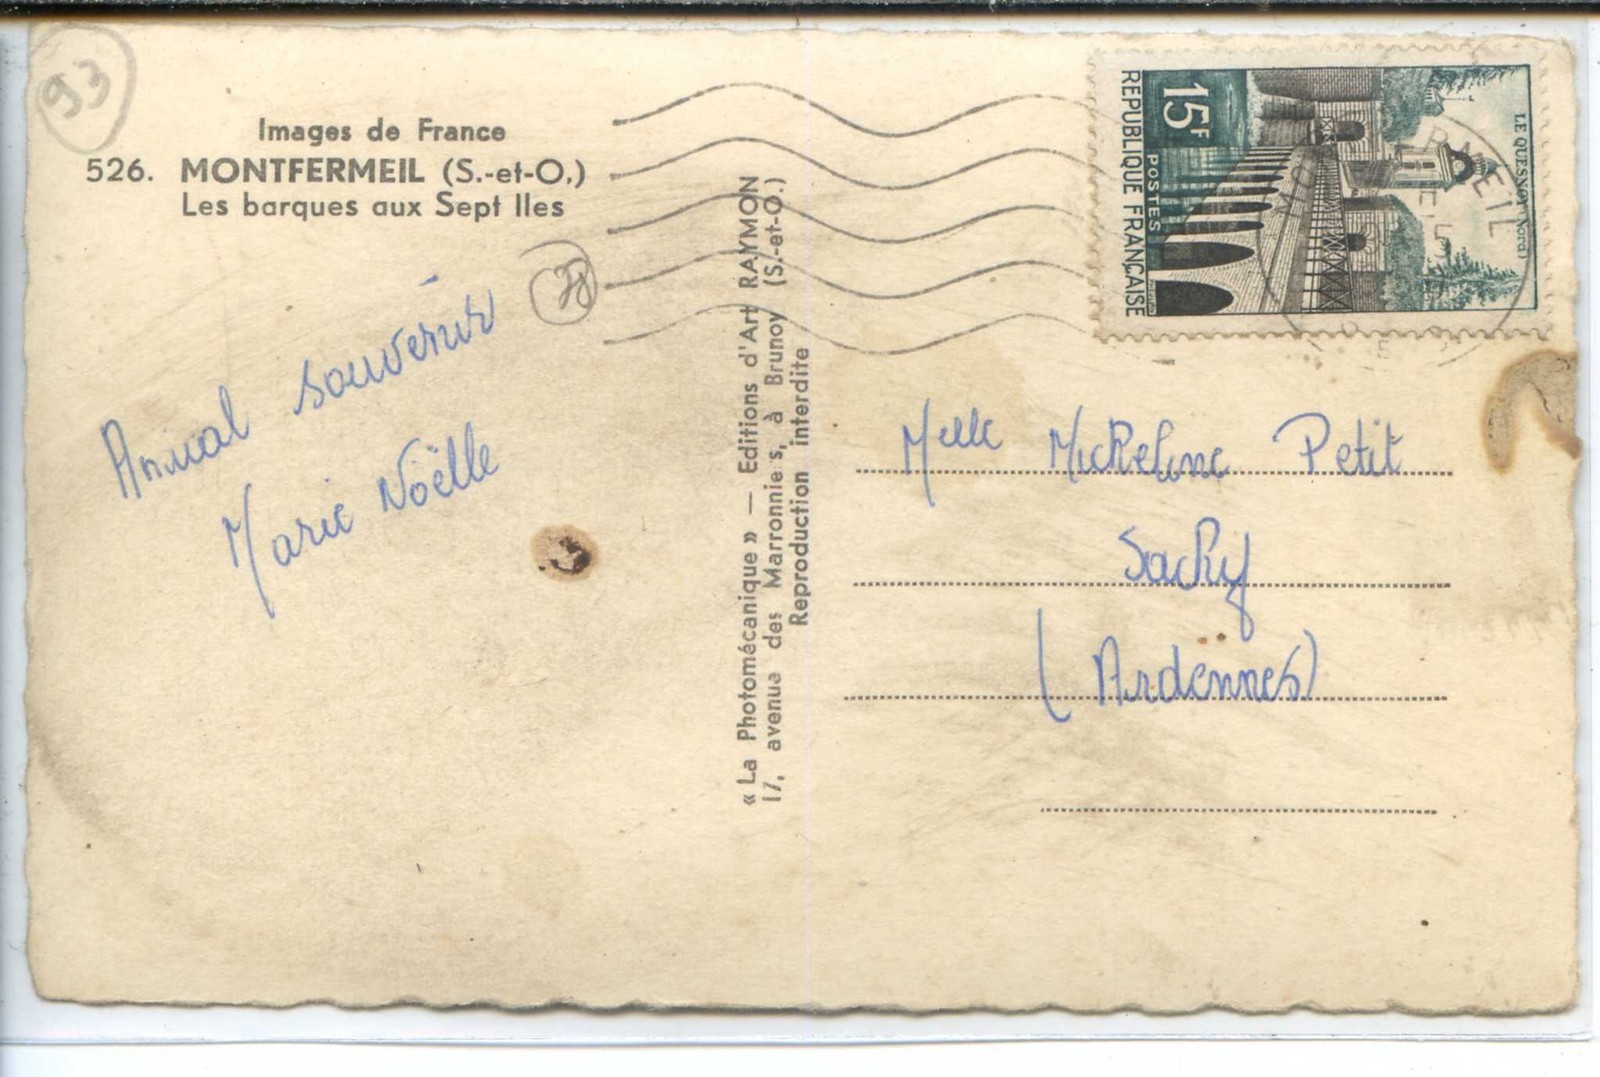 93
Images de France
526. MONTFERMEIL (S.-et-O.)
Les barques aux Sept Iles
Amical souvenir
Marie Noëlle
« La Photomécanique » — Editions d'Art RAYMON
17, avenue des Marronniers, à Brunoy (S.-et-O.)
Reproduction interdite
15F
POSTES
REPUBLIQUE FRANÇAISE
LE QUESNOY (Nord)
Melle Micheline Petit
Sachy
(Ardennes)